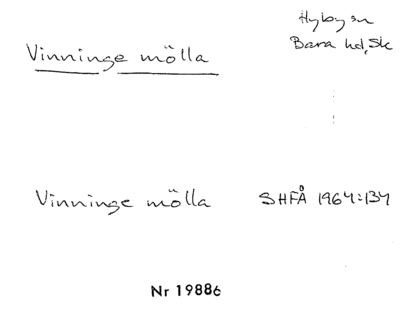 Hyby sn
Vinninge mölla
Bara hd, Sk
Vinninge mölla SHFÅ 1964:134
Nr 19886